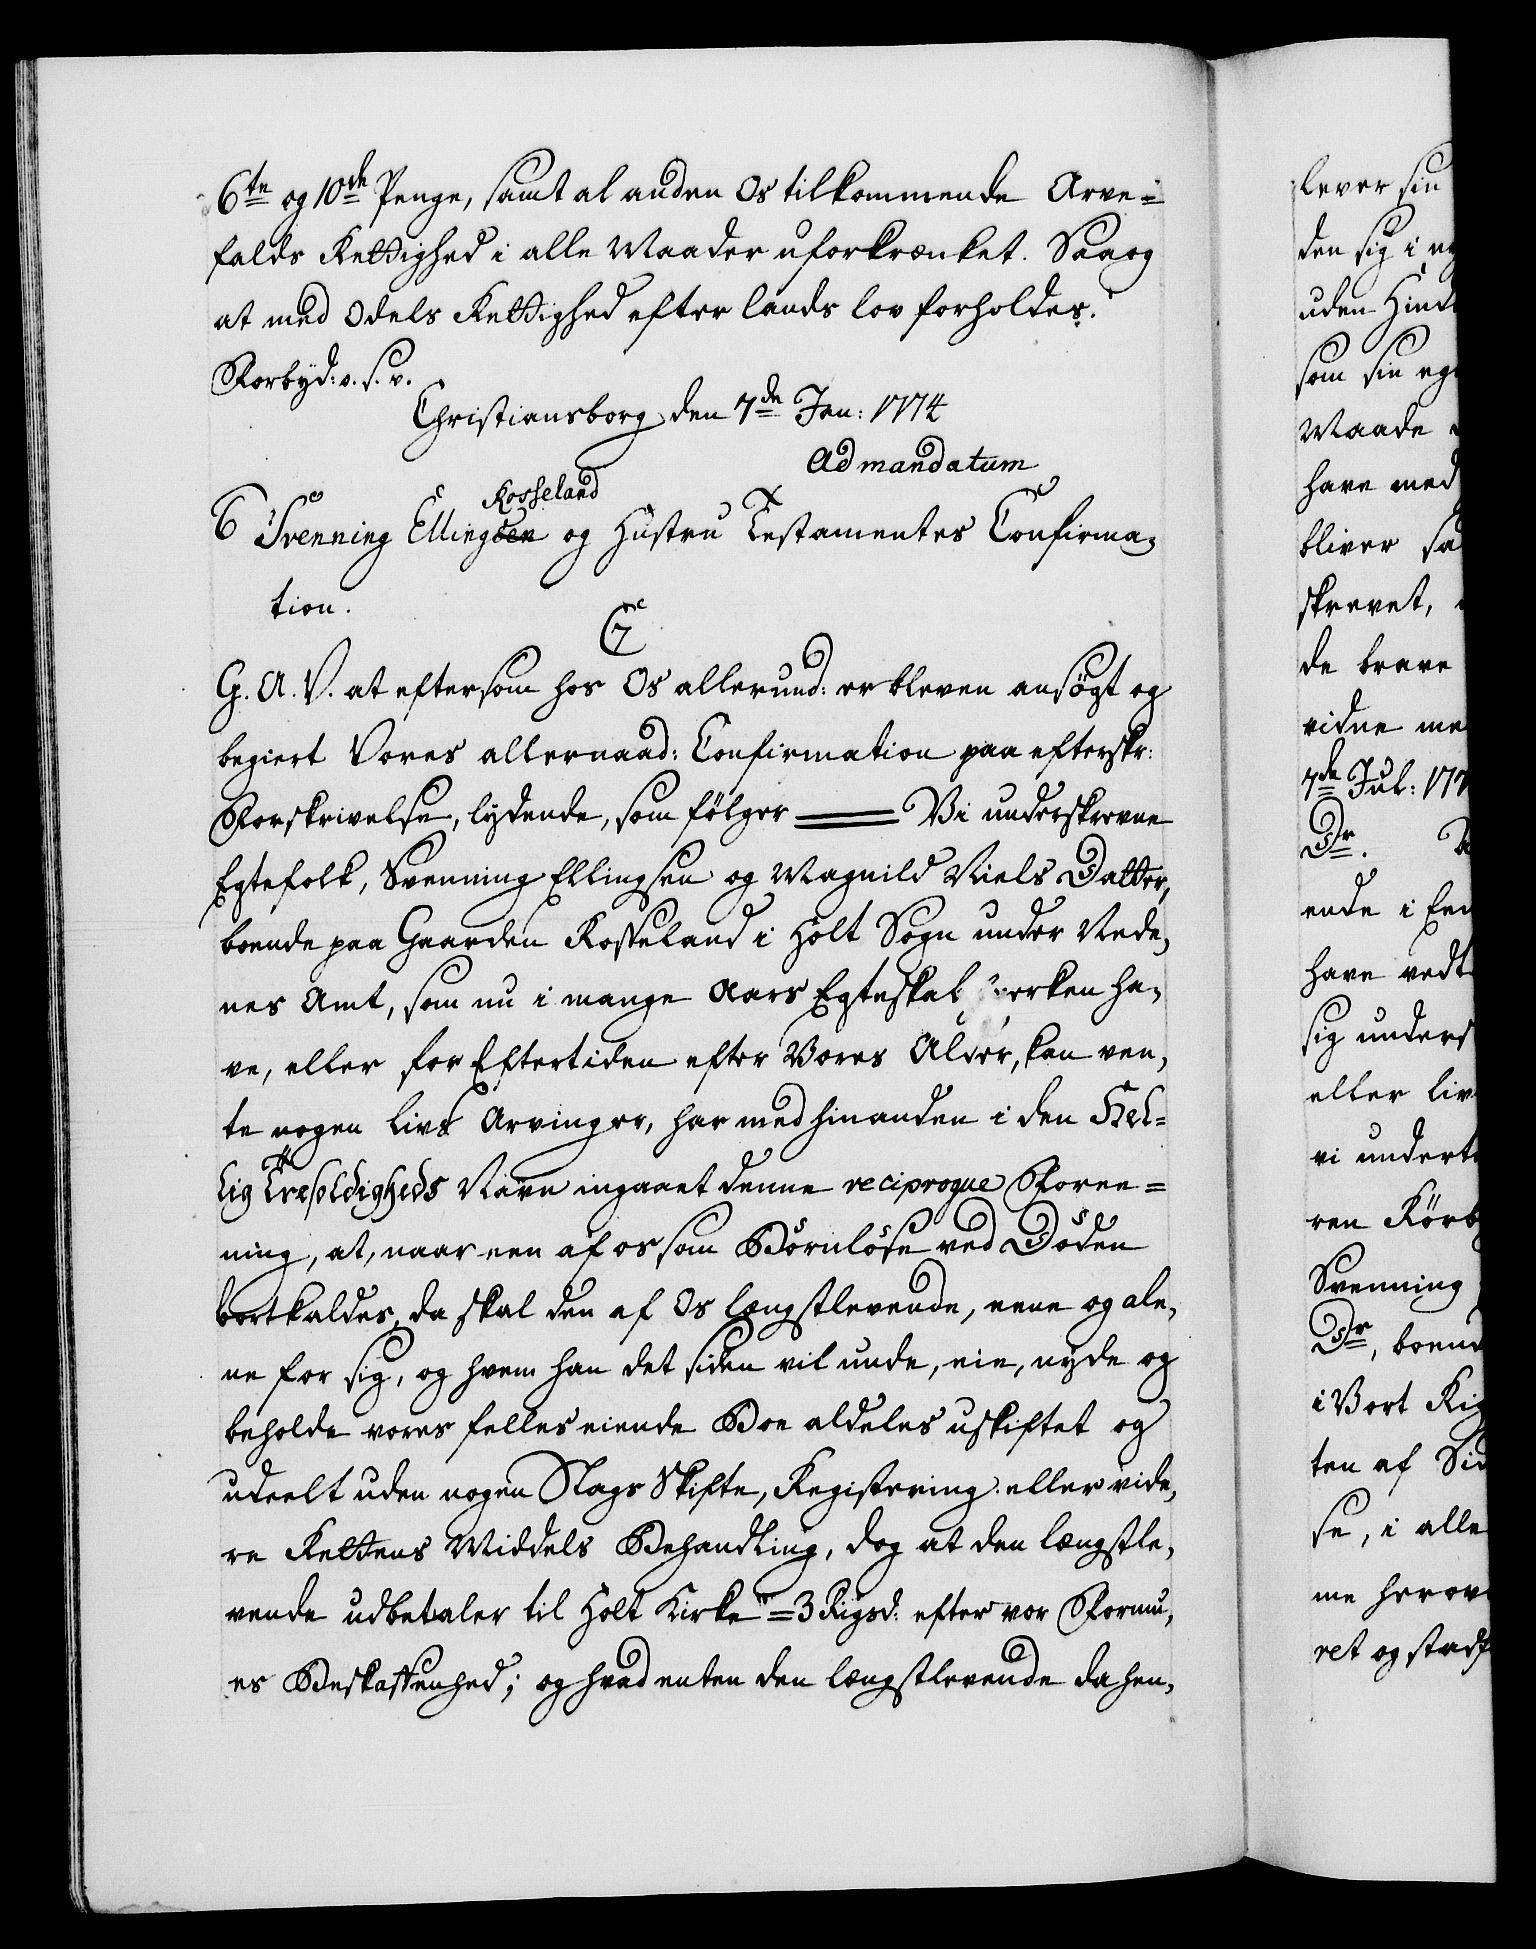 6te og 10de Penge, samt al anden Os tilkommende Arve=
falds Rettighed i alle Maader uforkrænket. Saa og
at med Odels Rettighed efter lands lov forholdes.
Forbyd: v. s. v.
Christiansborg den 7de Jan: 1774
Ad mandatum
Rosseland
6 Svenning Ellingsen og Hustru Testamentes Confirma-
tion.
C7
G. A. V. at eftersom hos Os allerund: er bleven ansøgt og
begiert Vores allernaad: Confirmation paa efterskr:
Forskrivelse, lydende, som følger == Vi underskrevne
Egtefolk, Svenning Ellingsen og Magnild Niels Datter,
boende paa Gaarden Rosseland i Holt Sogn under Nede-
nes Amt, som nu i mange Aars Egteskab hverken ha-
ve, eller for Eftertiden efter Vores Alder, kan ven-
te nogen livs Arvinger, har med hinanden i den Hel=
lig Træfoldigheds Navn ingaaet denne reciproque Foree=
ning, at, naar een af os som Børnløse ved Døden
bortkaldes, da skal den af Os længstlevende, eene og ale-
ne for sig, og hvem han det siden vil unde, eie, nyde og
beholde vores felles eiende Boe aldeles uskiftet og
udeelt uden nogen Slags Skifte, Registering eller vide-
re Rettens Middels Behandling, dog at den længstle-
vende udbetaler til Holt Kirke =3 Rigsd: efter vor Formu-
es Beskaffenhed; og hvad enten den længstlevende da hen-
lever sin
den sig i
uden
som sin
Maade
have med
bliver
skrevet,
de brave
vidne
7de Jul:
Dr.
ende i
have
sig
eller
vi
ren
Svenning
Dr, boend
i Vort
ten af
se, i alle
me
ret og